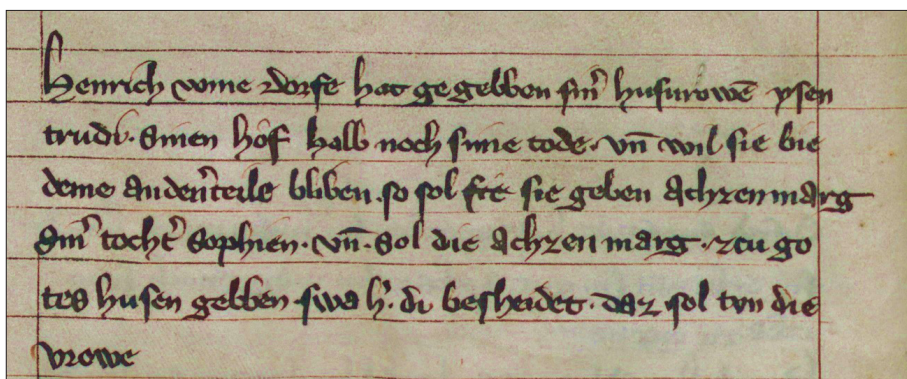 Henrich vome dorfe hat ge gebben sin̄ husurowē ysen
trudi· Sinen hof halb noch sime tode· vn̄ wil sie bie
deme anden̄teile bliben· so sol sie geben Achzen marg
Sin̄ tocht̄ Sophien· vn̄· Sol die Achzen marg· zcu go
tes husen gebben swa h̄· di besheidet· daz sol tvn die
vrowe